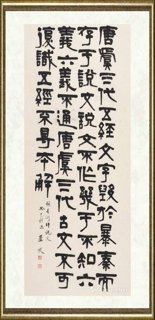 唐虞三代五經文字毀於暴秦而
存于說文說文不作幾于不知六
義六義不通唐虞三代古文不可
復識五經不㝵本解